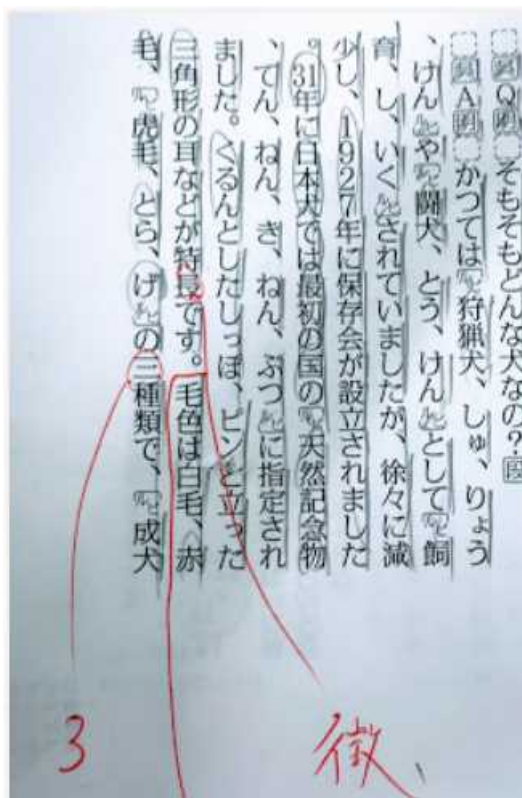 Qそもそもどんな犬なの?
Aかつては狩猟犬、しゅ、りょう
、けんや闘犬、とう、けんとして飼
育、し、いくされていましたが、徐々に減
少し、1927年に保存会が設立されました
。31年に日本犬では最初の国の天然記念物
、てん、ねん、き、ねん、ぶつに指定され
ました。くるんとしたしっぽ、ピンと立った
三角形の耳などが特長です。毛色は白毛、赤
毛、虎毛、とら、げの三種類で、成犬
徴
3